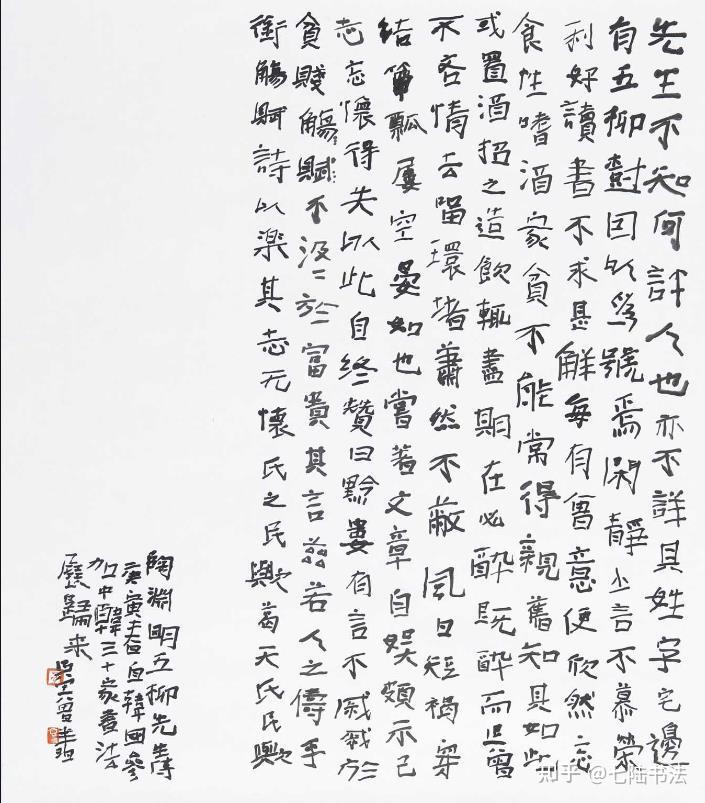 先生不知何許人也亦不詳其姓字宅邊
有五柳樹因以爲號焉閑靜少言不慕榮
利好讀書不求甚解每有會意便欣然忘
食性嗜酒家貧不能常得親舊知其如此
或置酒招之造飲輒盡期在必醉既醉而退曾
不吝情去留環堵蕭然不蔽風日短褐穿
結簞瓢屢空晏如也嘗著文章自娛頗示己
志忘懷得失以此自終贊曰黔婁有言不戚戚於
貧賤觴賦不汲〻於富貴其言茲若人之儔乎
銜觴賦詩以樂其志无懷氏之民歟葛天氏民歟
陶淵明五柳先生傳
庚寅春自韓國參
加中韓三十家書法
展歸來
知乎 @七陆书法